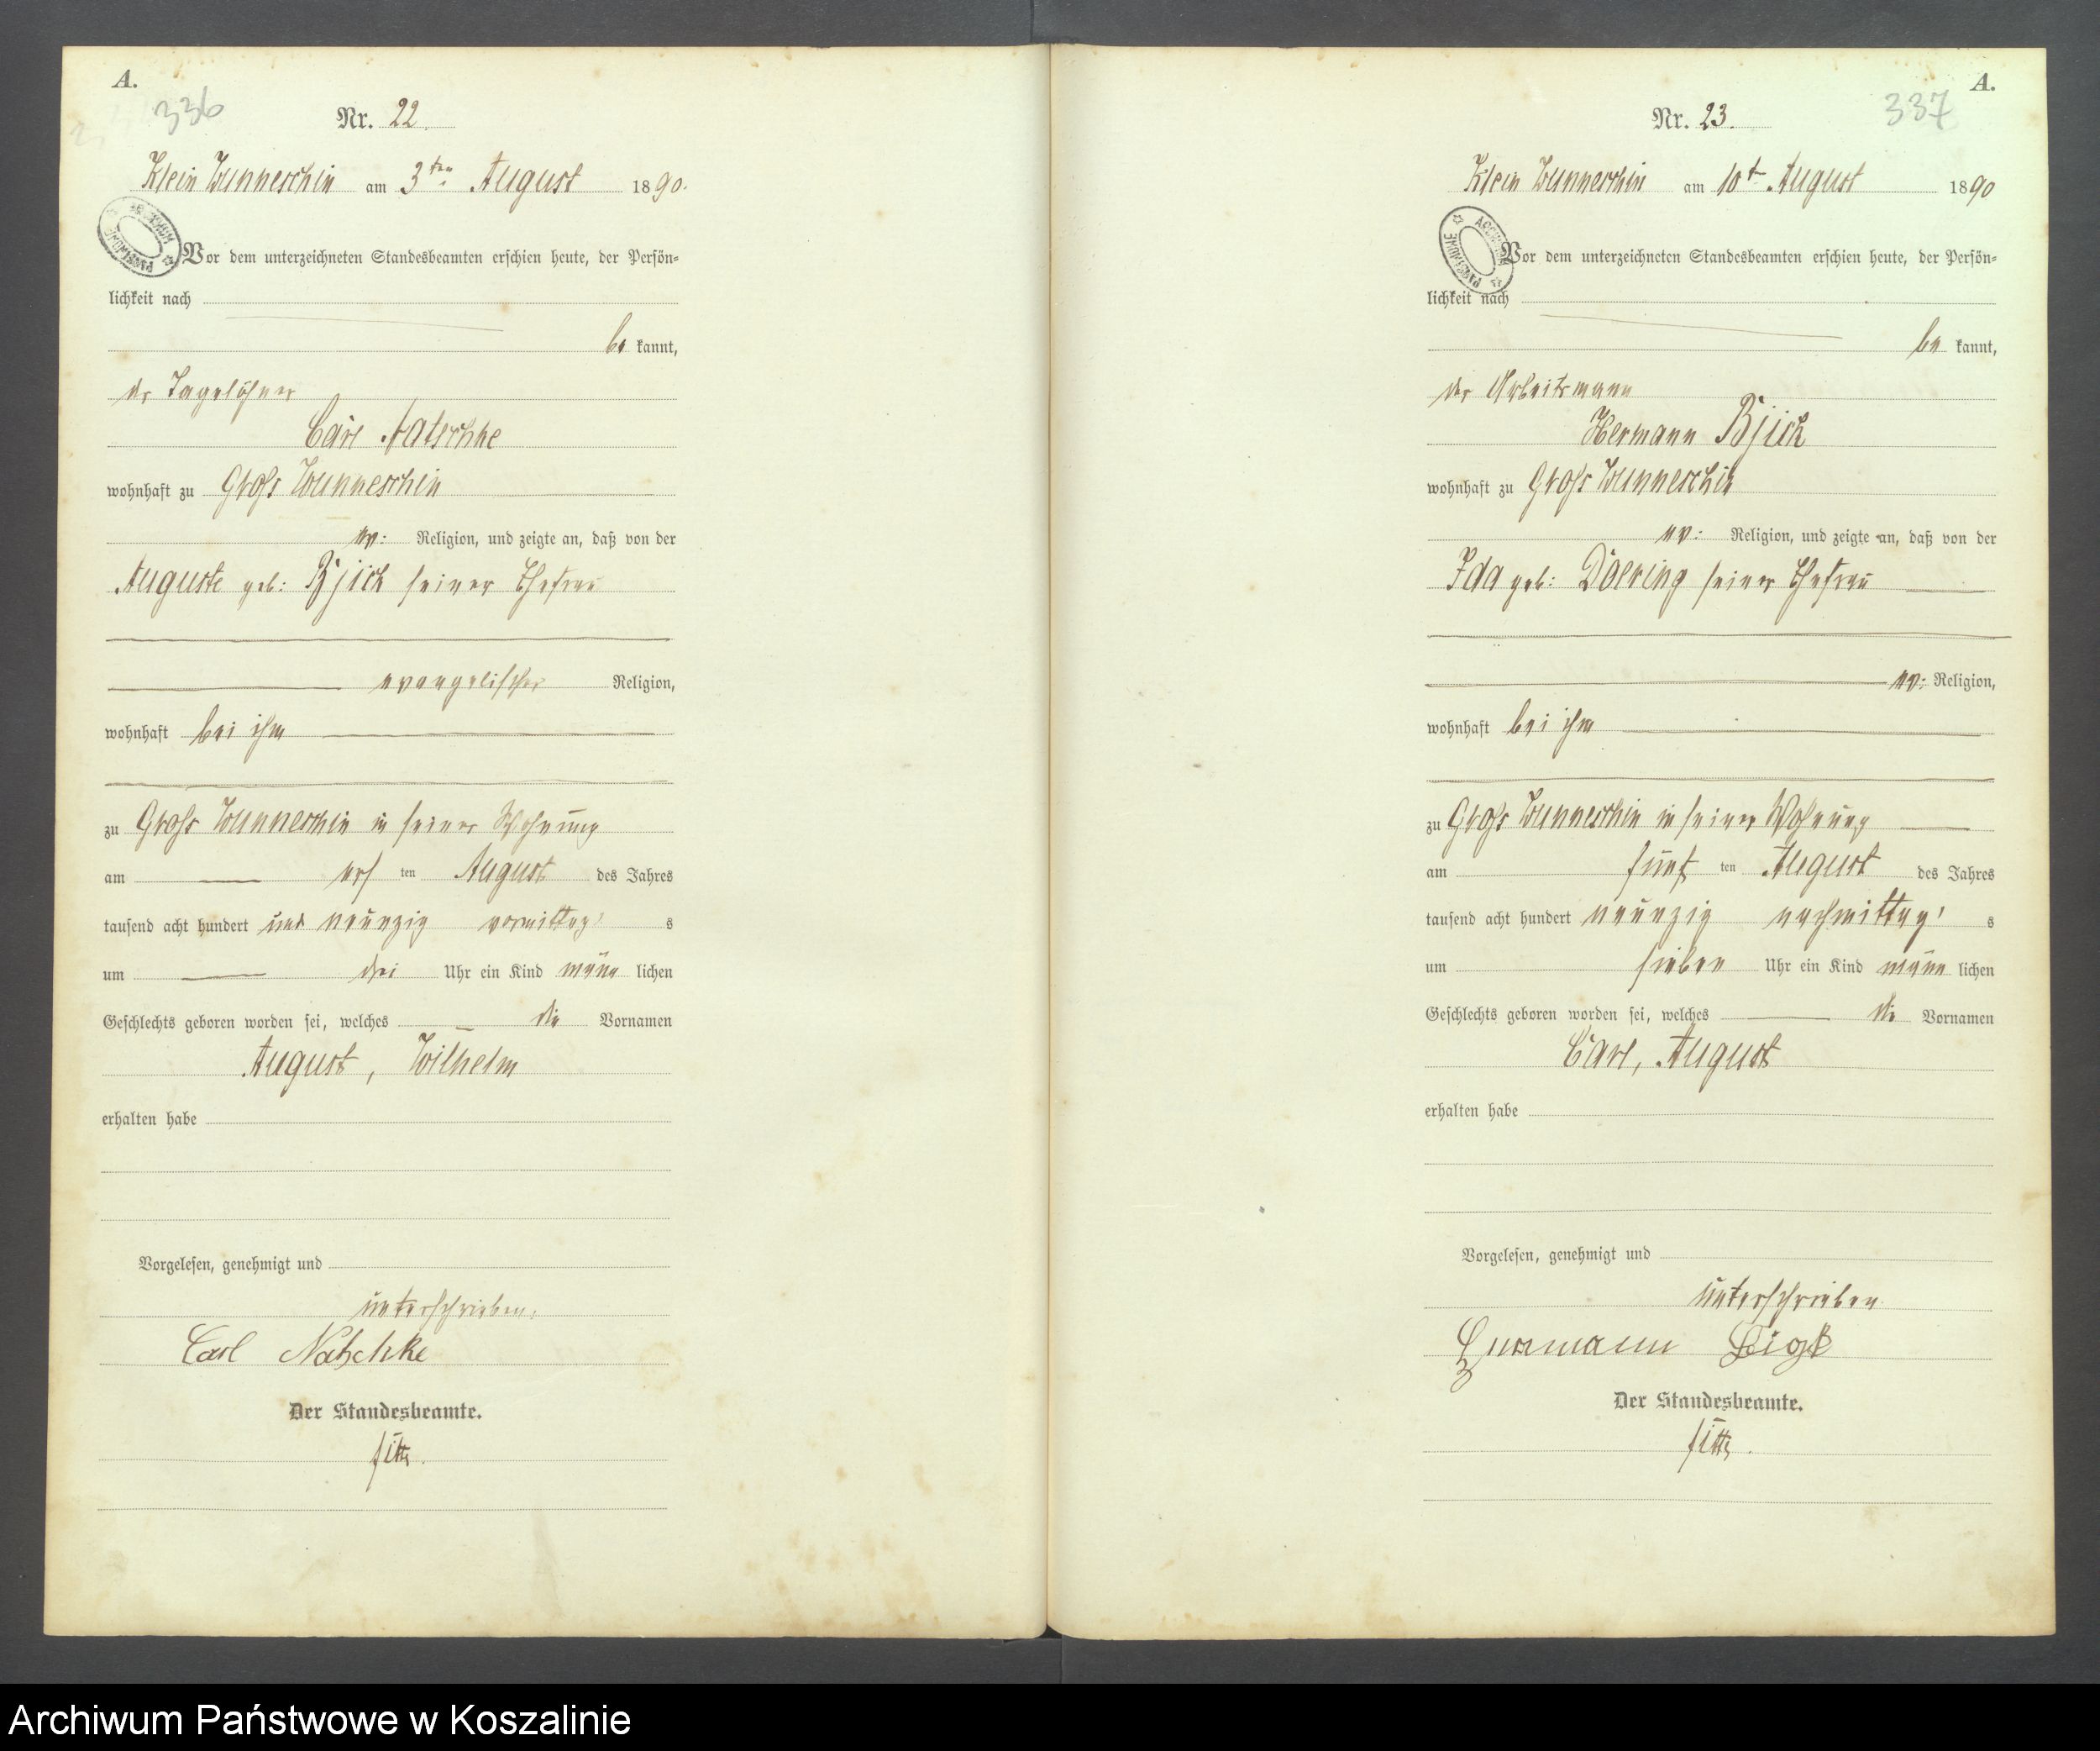 A.
336
Nr. 22.
Klein Wunneschin am 3ten August 1890.
Vor dem unterzeichneten Standesbeamten erschien heute, der Persön-
lichkeit nach
be kannt,
der Tagelöhner
Carl Natschke
wohnhaft zu Groß Wunneschin
ev: Religion, und zeigte an, daß von der
Auguste geb: seiner Ehefrau
evangelischer Religion,
wohnhaft bei ihm
zu Groß Wunneschin in seiner Wohnung
am ers ten August des Jahres
tausend acht hundert und neunzig vormittag s
um drei Uhr ein Kind männ lichen
Geschlechts geboren worden sei, welches die Vornamen
August, Wilhelm
erhalten habe
Vorgelesen, genehmigt und
unterschrieben.
Carl Natschke
Der Standesbeamte.
A.
337
Nr. 23.
Klein Wunneschin am 10t August 1890
Vor dem unterzeichneten Standesbeamten erschien heute, der Persön-
lichkeit nach
be kannt,
der Arbeitsmann
Hermann
wohnhaft zu Groß Wunneschin
ev: Religion, und zeigte an, daß von der
Ida geb: Doering seiner Ehefrau
ev: Religion,
wohnhaft bei ihm
zu Groß Wunneschin in seiner Wohnung
am fünf ten August des Jahres
tausend acht hundert neunzig nachmittag s
um sieben Uhr ein Kind männ lichen
Geschlechts geboren worden sei, welches die Vornamen
Carl, August
erhalten habe
Vorgelesen, genehmigt und
unterschrieben
Hermann
Der Standesbeamte.
Archiwum Państwowe w Koszalinie